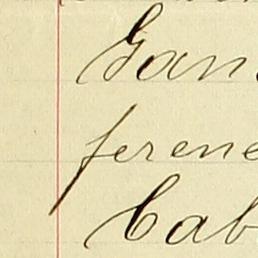 Gan
ferene
Cab